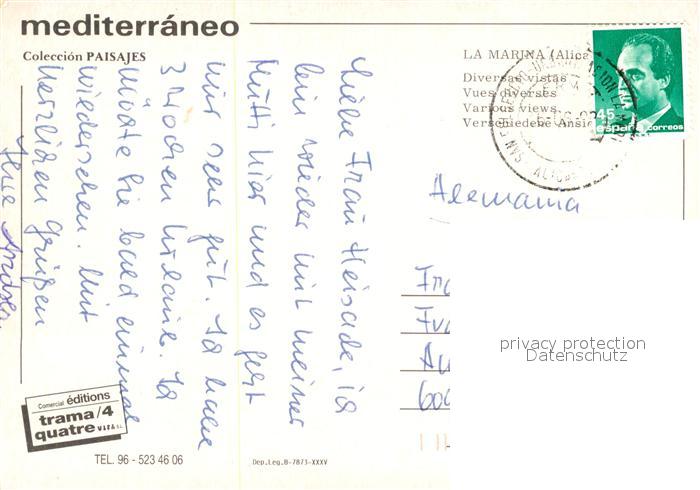 mediterráneo
Colección PAISAJES
LA MARINA (Alica
Diversas vistas
Vues diverses
Various views
Verschiedebe Ansic
45
españa correos
Liebe Frau Heisade, ich
bin wieder mit meiner
Mutti hier und es geht
uns sehr gut. Ich habe
3 Wochen Urlaub. Ich
möchte Sie bald einmal
wiedersehen. Mit
herzlichen Grüßen
Ihre
Alemania
privacy protection
Datenschutz
Comercial éditions
trama/4
quatre
TEL. 96 - 523 46 06
Dep.Leg.B-7873-XXXV